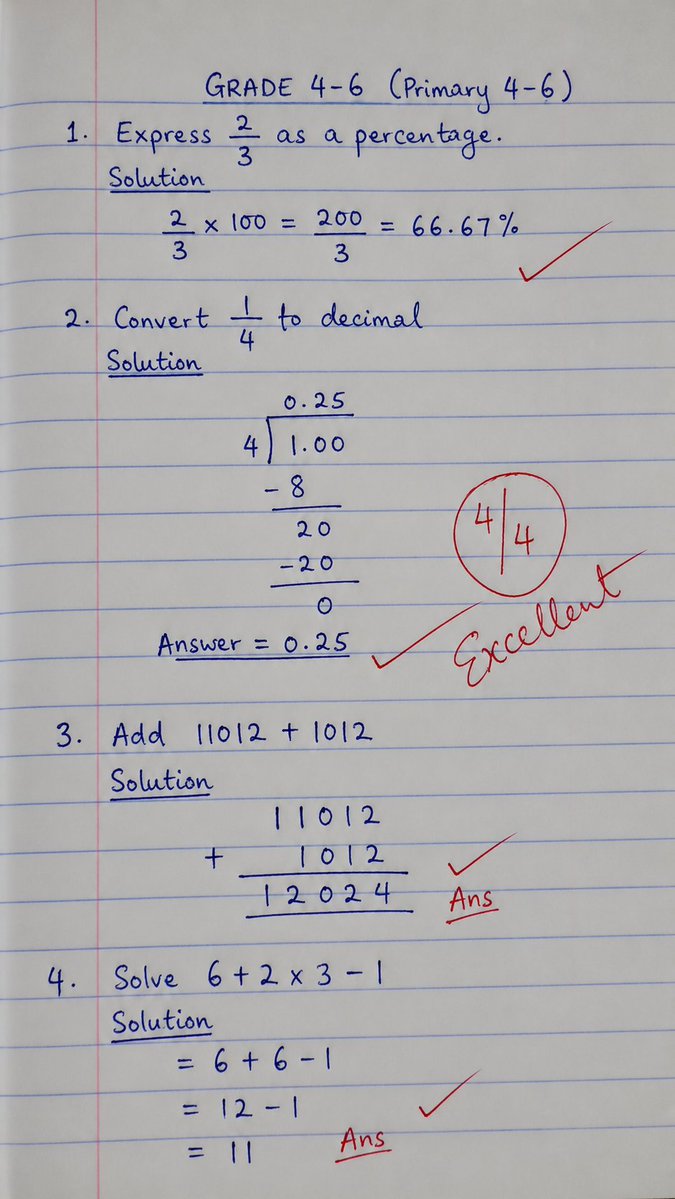 GRADE 4-6 (Primary 4-6)
1. Express 2/3 as a percentage.
Solution
2/3 x 100 = 200/3 = 66.67%
2. Convert 1/4 to decimal
Solution
0.25
4 1.00
- 8
20
-20
0
4/4
Excellent
Answer = 0.25
3. Add 11012 + 1012
Solution
11012
+ 1012
12024 Ans
4. Solve 6 + 2 x 3 - 1
Solution
= 6 + 6 - 1
= 12 - 1
= 11 Ans